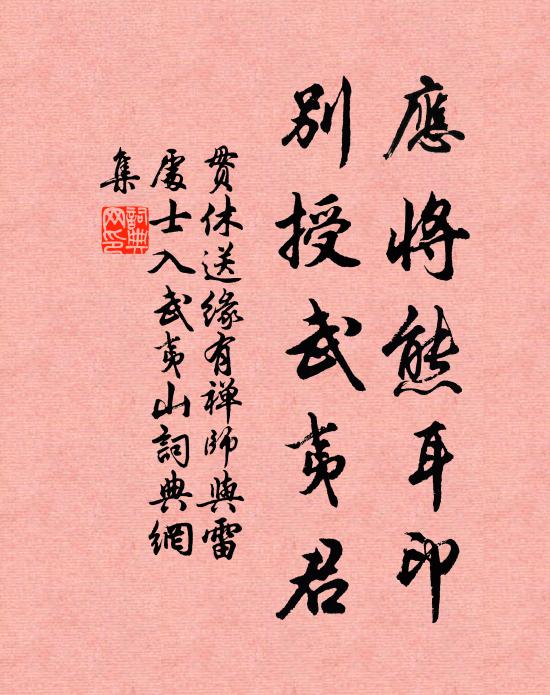 應將熊耳印
別授武夷君
貫休送緣有禪師與雷
處士入武夷山詞典網
集
詞典
网印